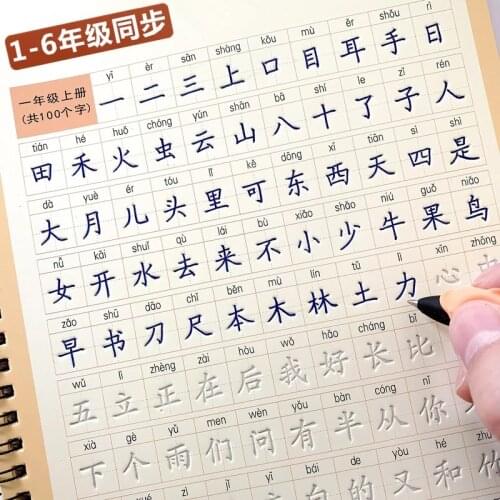 1-6年级同步
yī èr sān shàng kǒu mù ěr shǒu rì
一年级上册
(共100个字)
一 二 三 上 口 目 耳 手 日
tián hé huǒ chóng yún shān bā shí le zǐ rén
田 禾 火 虫 云 山 八 十 了 子 人
dà yuè ér tóu lǐ kě dōng xī tiān sì shì
大 月 儿 头 里 可 东 西 天 四 是
nǚ kāi shuǐ qù lái bù xiǎo shǎo niú guǒ niǎo
女 开 水 去 来 不 小 少 牛 果 鸟
zǎo shū dāo chǐ běn mù lín tǔ lì xīn zhōng
早 书 刀 尺 本 木 林 土 力 心
wǔ lì zhèng zài hòu wǒ hǎo cháng bǐ
五 立 正 在 后 我 好 长 比
xià gè yǔ men wèn yǒu bàn cóng nǐ
下 个 雨 们 问 有 半 从 你
bái de yòu hé
又 和